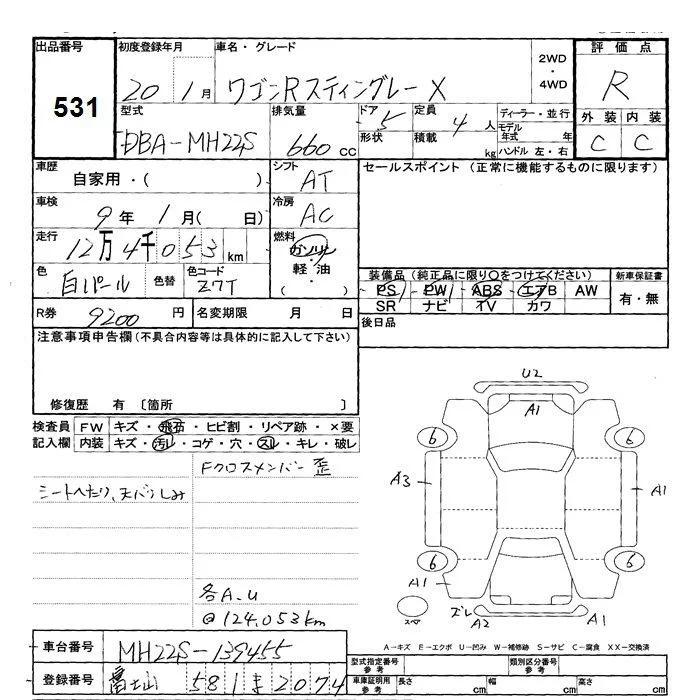 出品番号
531
初度登録年月
20 1月
車名・グレード
ワゴンRスティングレー X
2WD
・
4WD
評価点
R
外装 内装
C C
型式
DBA-MH22S
排気量
660 cc
ドア 5
形状
定員 4 人
積載 kg
ディーラー・並行
モデル年式 年
ハンドル 左・右
車歴
自家用・( )
シフト
AT
セールスポイント (正常に機能するものに限ります)
車検
9年 1月( 日)
冷房
AC
走行
12万4千053 km
燃料
ガソリン
・
軽油
( )
色
白パール
色替
色コード
Z7T
装備品 (純正品に限り○をつけてください)
PS PW ABS エアB AW
SR ナビ TV カワ
新車保証書
有・無
R券 9200 円
名変期限 月 日
後日品
注意事項申告欄 (不具合内容等は具体的に記入して下さい)
修復歴 有 〔箇所 〕
検査員記入欄
FW キズ・飛石・ヒビ割・リペア跡・×要
内装 キズ・汚レ・コゲ・穴・スレ・キレ・破レ
Fクロスメンバー 歪
シートへたり、天バリしみ
各A.U
@124.053km
U2
A1
6
6
A3
A1
6
6
A1
スペア
ズレ
A2
A1
A-キズ E-エクボ U-凹み W-補修跡 S-サビ C-腐食 XX-交換済
車台番号 MH22S-139455
登録番号 富士山 581 ま 2074
型式指定番号
参考
類別区分番号
参考
車庫証明用
参考
長さ cm 幅 cm 高さ cm